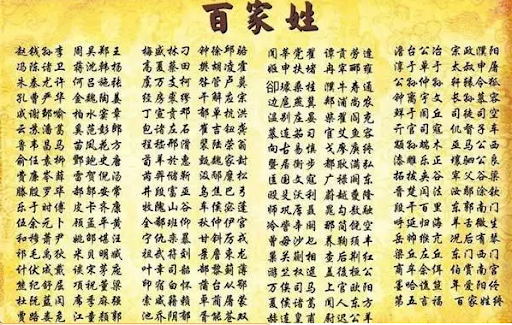 百家姓
赵钱孙李 周吴郑王 梅盛林刁 钟徐邱骆 闻莘党翟 谭贡劳逄 澹台公冶 宗政濮阳
冯陈褚卫 蒋沈韩杨 高夏蔡田 樊胡凌霍 姬申扶堵 冉宰郦雍 淳于单于 太叔申屠
朱秦尤许 何吕施张 虞万支柯 昝管卢莫 卻璩桑桂 濮牛寿通 公孙仲孙 轩辕令狐
孔曹严华 金魏陶姜 经房裘缪 干解应宗 边扈燕冀 郏浦尚农 钟离宇文 长孙慕容
戚谢邹喻 柏水窦章 丁宣贲邓 郁单杭洪 温别庄晏 柴瞿阎充 鲜于闾丘 司徒司空
云苏潘葛 奚范彭郎 包诸左石 崔吉钮龚 慕连茹习 宦艾鱼容 亓官司寇 仉督子车
鲁韦昌马 苗凤花方 程嵇邢滑 裴陆荣翁 向古易慎 戈廖庾终 颛孙端木 巫马公西
俞任袁柳 酆鲍史唐 荀羊於惠 甄曲家封 暨居衡步 都耿满弘 漆雕乐正 壤驷公良
费廉岑薛 雷贺倪汤 芮羿储靳 汲邴糜松 匡国文寇 广禄阙东 拓跋夹谷 宰父谷梁
滕殷罗毕 郝邬安常 井段富巫 乌焦巴弓 欧殳沃利 蔚越夔隆 晋楚闫法 汝鄢涂钦
乐于时傅 皮卞齐康 牧隗山谷 车侯宓蓬 师巩厍聂 晁勾敖融 段干百里 东郭南门
伍余元卜 顾孟平黄 全郗班仰 秋仲伊宫 冷訾辛阚 那简饶空 呼延归海 羊舌微生
和穆萧尹 姚邵湛汪 宁仇栾暴 甘钭厉戎 曾毋沙乜 养鞠须丰 岳帅缑亢 况后有琴
祁毛禹狄 米贝明臧 祖武符刘 景詹束龙 巢关蒯相 查后荆红 梁丘左丘 东门西门
计伏成戴 谈宋茅庞 叶幸司韶 郜黎蓟薄 游竺权逯 盖益桓公 商牟佘佴 伯赏南宫
熊纪舒屈 项祝董梁 印宿白怀 蒲邰从鄂 万俟司马 上官欧阳 墨哈谯笪 年爱阳佟
杜阮蓝闵 席季麻强 索咸籍赖 卓蔺屠蒙 夏侯诸葛 闻人东方 第五言福 百家姓终